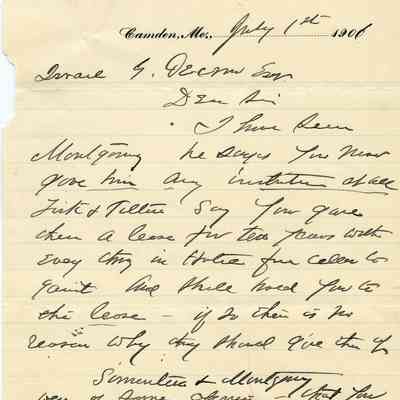 Camden, Me., July 1st 1906
Israel G. Decrow Esq
Dear Sir
I have seen
Montgomery he says you never
gave him any at all
Fisk & say you gave
them a lease for ten years with
every thing in Hotel from cellar to
and shall hold you to
the lease — if so there is no
reason why they should give them up
& Montgomery
of some — that you